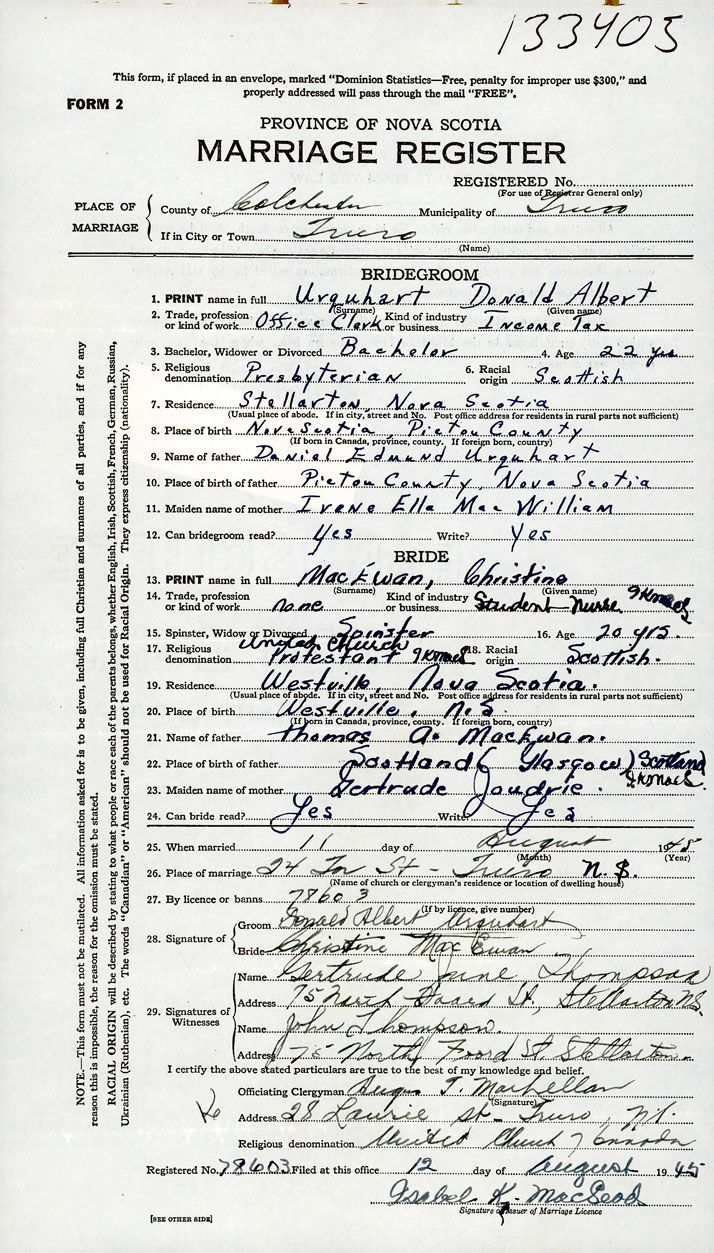 133405
This form, if placed in an envelope, marked "Dominion Statistics—Free, penalty for improper use $300," and
properly addressed will pass through the mail "FREE".
FORM 2
PROVINCE OF NOVA SCOTIA
MARRIAGE REGISTER
REGISTERED No.
(For use of Registrar General only)
PLACE OF MARRIAGE
County of Colchester Municipality of Truro
If in City or Town Truro
(Name)
BRIDEGROOM
1. PRINT name in full Urquhart Donald Albert
(Surname) (Given name)
2. Trade, profession or kind of work Office Clerk Kind of industry or business Income Tax
3. Bachelor, Widower or Divorced Bachelor 4. Age 22 yrs
5. Religious denomination Presbyterian 6. Racial origin Scottish
7. Residence Stellarton, Nova Scotia
(Usual place of abode. If in city, street and No. Post office address for residents in rural parts not sufficient)
8. Place of birth Nova Scotia, Pictou County
(If born in Canada, province, county. If foreign born, country)
9. Name of father Daniel Edmund Urquhart
10. Place of birth of father Pictou County, Nova Scotia
11. Maiden name of mother Irene Ella MacWilliam
12. Can bridegroom read? Yes Write? Yes
BRIDE
13. PRINT name in full MacEwan, Christine
(Surname) (Given name)
14. Trade, profession or kind of work none Kind of industry or business Student Nurse
15. Spinster, Widow or Divorced Spinster 16. Age 20 yrs.
17. Religious denomination United Church Protestant 18. Racial origin Scottish.
19. Residence Westville, Nova Scotia.
(Usual place of abode. If in city, street and No. Post office address for residents in rural parts not sufficient)
20. Place of birth Westville, N.S
(If born in Canada, province, county. If foreign born, country)
21. Name of father Thomas A. MacEwan.
22. Place of birth of father Scotland (Glasgow) Scotland
23. Maiden name of mother Gertrude Joudrie.
24. Can bride read? Yes Write Yes
25. When married 11 day of August 1945
(Month) (Year)
26. Place of marriage 24 St - Truro N.S.
(Name of church or clergyman's residence or location of dwelling house)
27. By licence or banns 78603
(If by licence, give number)
28. Signature of
Groom Donald Albert Urquhart
Bride Christine MacEwan
29. Signatures of Witnesses
Name Gertrude June Thompson
Address 75 North Foord St, Stellarton N.S.
Name John Thompson.
Address 75 North Foord St. Stellarton.
I certify the above stated particulars are true to the best of my knowledge and belief.
Officiating Clergyman Angus T. MacLellan
(Signature)
Address 28 Laurie St - Truro, N.S.
Religious denomination United Church of Canada
Registered No. 78603 Filed at this office 12 day of August 1945
Isabel K. MacLeod
Signature of Issuer of Marriage Licence
[SEE OTHER SIDE]
NOTE.—This form must not be mutilated. All information asked for is to be given, including full Christian and surnames of all parties, and if for any
reason this is impossible, the reason for the omission must be stated.
RACIAL ORIGIN will be described by stating to what people or race each of the parents belongs, whether English, Irish, Scottish, French, German, Russian,
Ukrainian (Ruthenian), etc. The words "Canadian" or "American" should not be used for Racial Origin. They express citizenship (nationality).